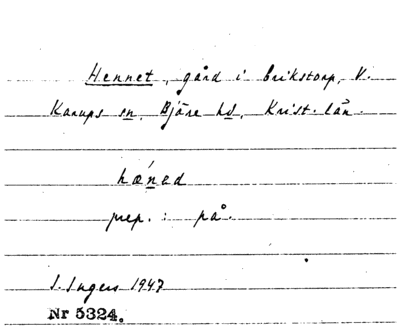 Hennet, gård i Erikstorp, V.
Karups sn, Bjäre hd, Krist. län.
hǽnad
prep. : på.
I. Ingers 1947
Nr 5324.